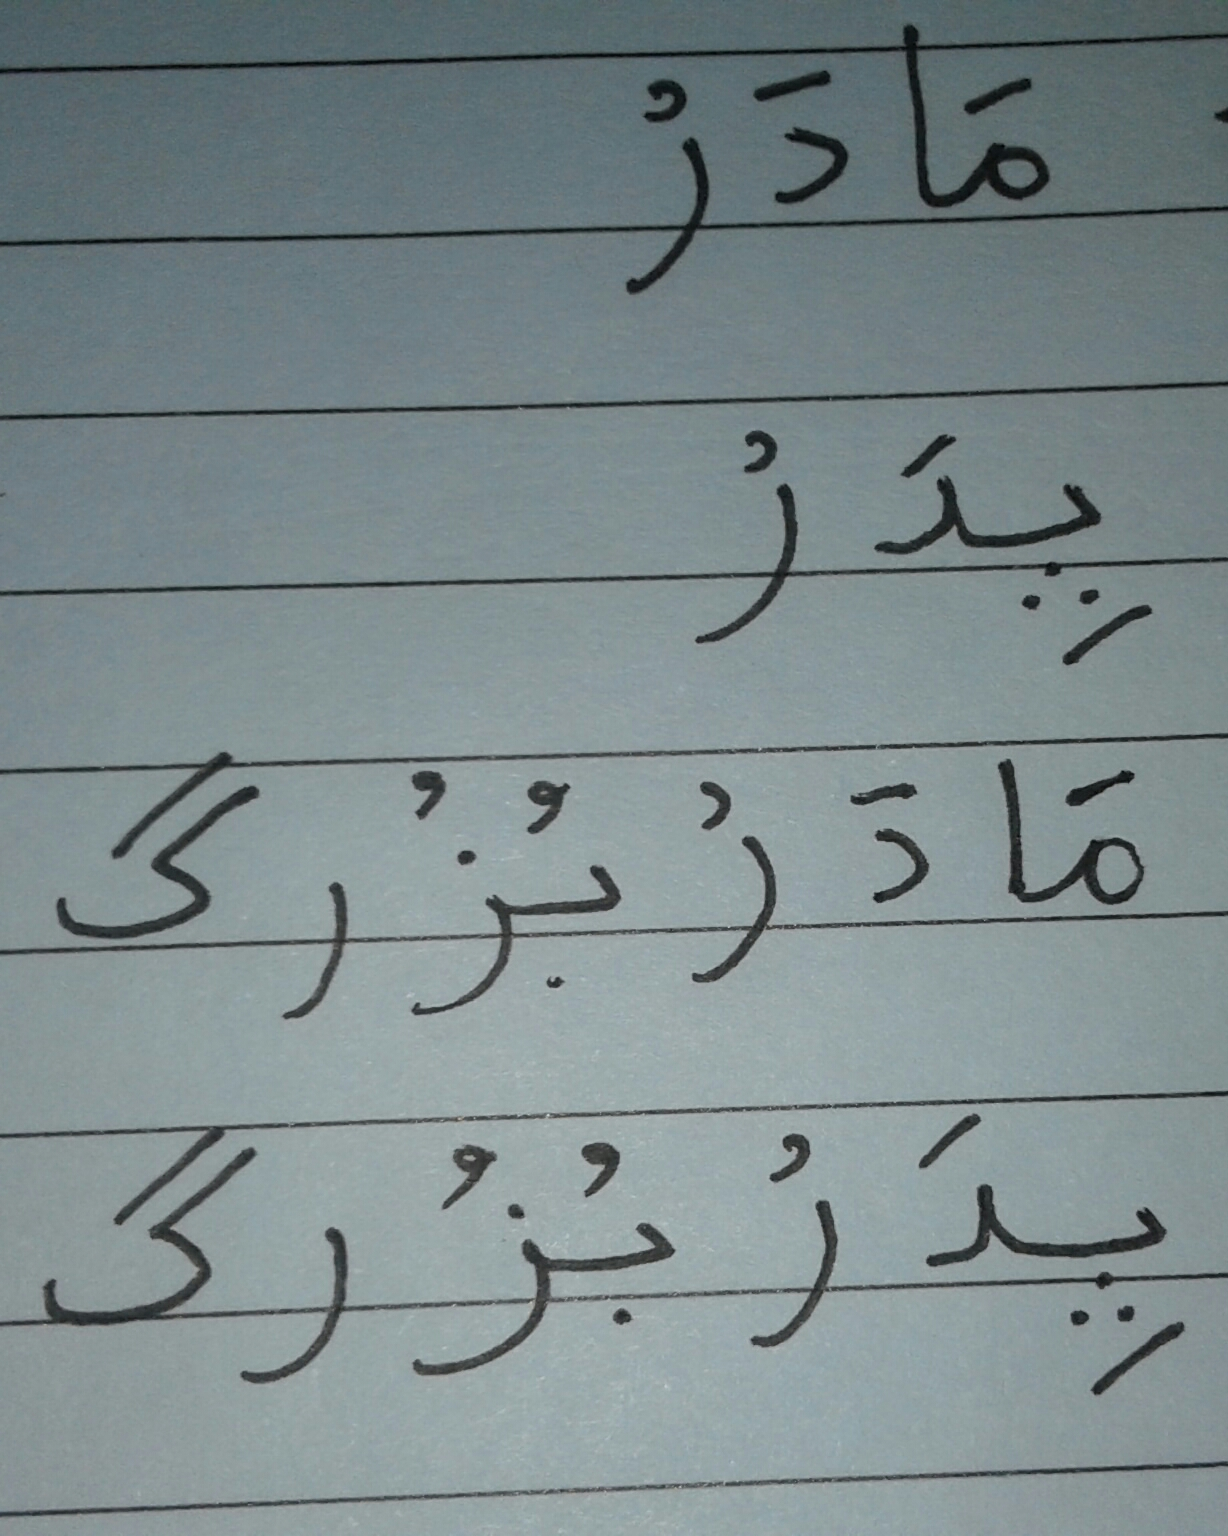 مَادَرُ
پِدَرُ
مَادَرُ بُزُرگ
پِدَرُ بُزُرگ